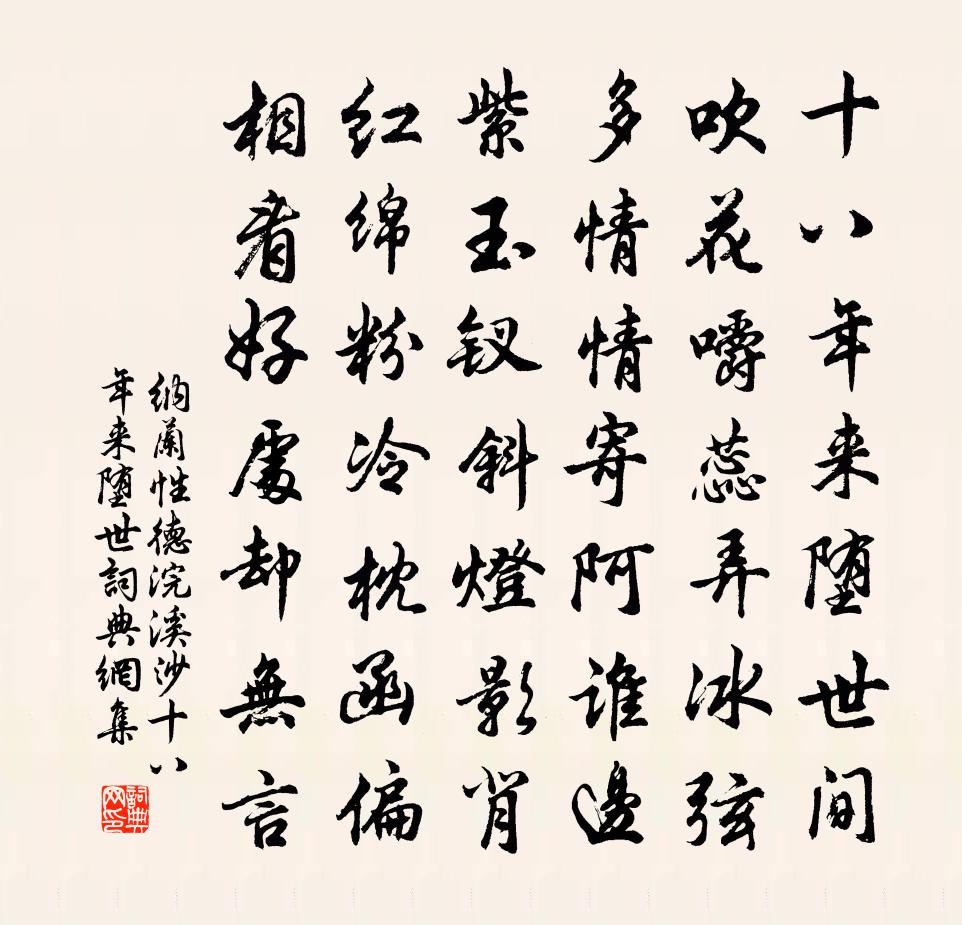 十八年来堕世间
吹花嚼蕊弄冰弦
多情情寄阿谁邊
紫玉钗斜燈影背
红绵粉冷枕函偏
相看好處却無言
纳蘭性德浣溪沙十八
年来堕世詞典網集
詞典网印